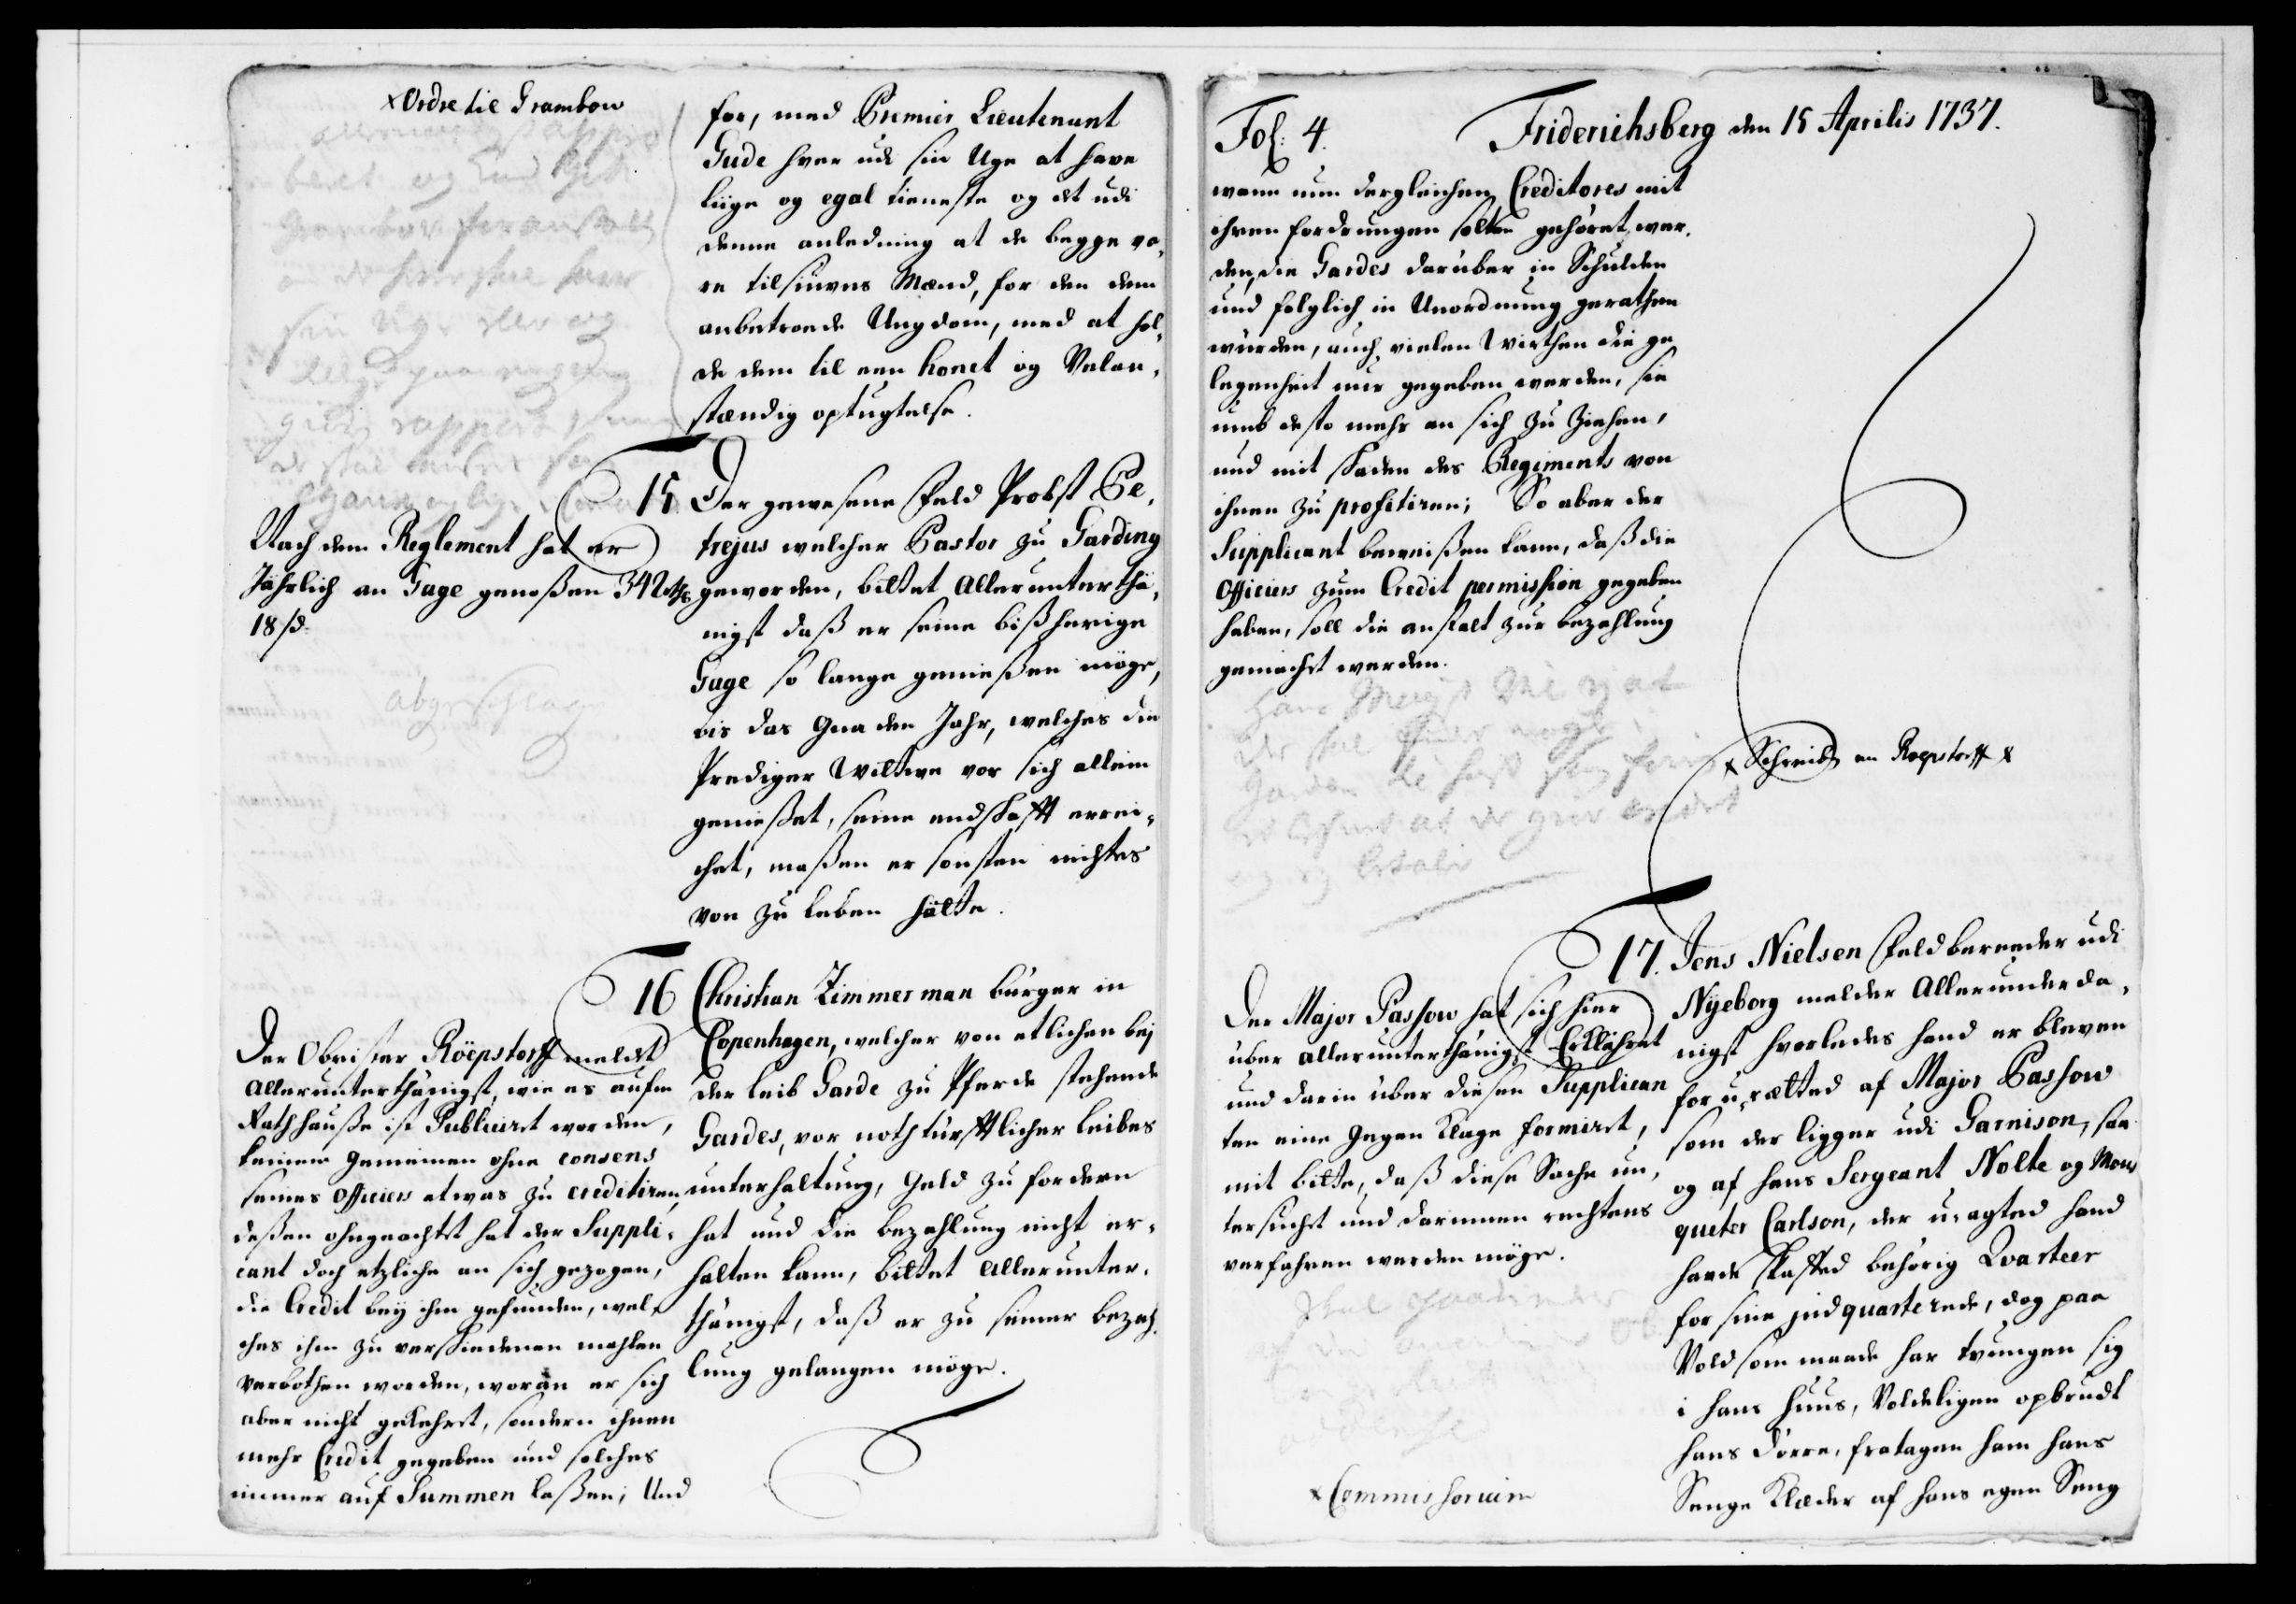 x Ordre til Grambow
for, med Premier Lieutenant
Gude hver udi sin Uge at have
liige og egal tieneste og det udi
denne anledning at de begge va,
re tilsiuns Mænd, for den dem
anbetroede Ungdom, med at hol,
de dem til een honet og Velan,
stændig optugtelse.
15. Der gewesene Feld Probst Pe,
trejus welcher Pastor zu Garding
geworden, bittet allerunterthä,
nigst daß er seine bißherige
Gage so lange genießen möge,
bis das Gnaden Jahr, welches die
Prediger Wittwe vor sich allein
genießet, seine endschafft errei,
chet, maßen er sonsten nichtes
von zu leben hätte.
Nach dem Reglement hat er
Jährlich an Gage genoßen 342
18 ß.
abgeschlagen
16 Christian Zimmerman bürger in
Copenhagen, welcher von etlichen bej
der leib Garde zu Pferde stehende
Gardes, vor nothtürfftlicher leibes
unterhaltung, Geld zu fordern
hat und die bezahlung nicht er,
halten kann, bittet allerunter,
thänigst, daß er zu seiner bezah,
lung gelangen möge.
Der Obrister Röepstorff meldet
allerunterthänigst, wie es aufm
Rathhauße ist Publiciret worden,
keinem Gemeinen ohne consens
seines Officiers etwas zu creditiren,
deßen ohngeachtet hat der Suppli,
cant doch etzliche an sich gezogen,
die Credit bey ihm gefunden, wel,
ches ihm zu verschiedenen mahlen
verbothen worden, woran er sich
aber nicht gekehret, sondern ihnen
mehr Credit gegeben und solches
immer auf Summen laßen; Und
Fol: 4.
Friderichsberg den 15 Aprilis 1737.
wann nun dergleichen Creditores mit
ihren fordrungen solten gehöret wer,
den, die Gardes darüber in Schulden
und folglich in Unordnung gerathen
würden, auch vielen Wirthen die ge
legenheit nur gegeben werden, sie
umb desto mehr an sich zu ziehen,
und mit schaden des Regiments von
ihnen zu profitiren; So aber der
Supplicant beweißen kann, daß die
Officiers zum Credit permission gegeben
haben, soll die anstalt zur bezahlung
gemacht werden.
x Schreib an Roepstorff x
17. Jens Nielsen Feldbereeder udi
Nyeborg melder Allerunderda,
nigst hvorledes hand er bleven
for u,rætted af Major Passow
som der ligger udi Garnison, saa
og af hans Sergeant Nolte og Mous
queter Carlson, der u,agted hand
havde skaffed behørig Qvarteer
for sine jndquarterede, dog paa
Voldsom maade har tvungen sig
i hans Huus, Voldeligen opbrudt
hans Dörre, fratagen ham hans
Senge Klæder af hans egen Seng
Der Major Passow hat sich hier
über allerunterthänigst Erklähret
und darin über diesen Supplican
ten eine Gegen Klage formiret,
mit bitte, daß diese Sache un,
tersucht und darinnen rechtens
verfahren werden möge.
x Commissorium